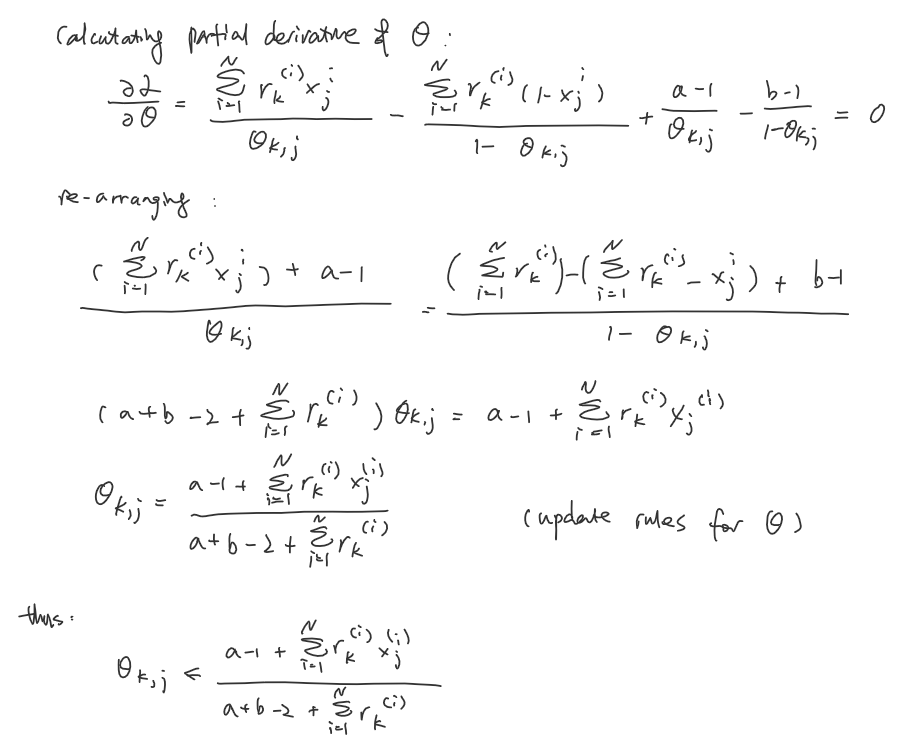 Calcutating partial derivative of θ :
∂L/∂θ = (∑_{i=1}^{N} r_k^{(i)} x_j^i)/(θ_{k,j}) - (∑_{i=1}^{N} r_k^{(i)} (1-x_j^i))/(1-θ_{k,j}) + (a-1)/(θ_{k,j}) - (b-1)/(1-θ_{k,j}) = 0
re-arranging :
((∑_{i=1}^{N} r_k^{(i)} x_j^i) + a-1)/(θ_{k,j}) = ((∑_{i=1}^{N} r_k^{(i)}) - (∑_{i=1}^{N} r_k^{(i)} - x_j^i) + b-1)/(1-θ_{k,j})
(a+b-2 + ∑_{i=1}^{N} r_k^{(i)}) θ_{k,j} = a-1 + ∑_{i=1}^{N} r_k^{(i)} x_j^{(i)}
θ_{k,j} = (a-1 + ∑_{i=1}^{N} r_k^{(i)} x_j^{(i)})/(a+b-2 + ∑_{i=1}^{N} r_k^{(i)}) (update rules for θ)
thus:
θ_{k,j} ← (a-1 + ∑_{i=1}^{N} r_k^{(i)} x_j^{(i)})/(a+b-2 + ∑_{i=1}^{N} r_k^{(i)})